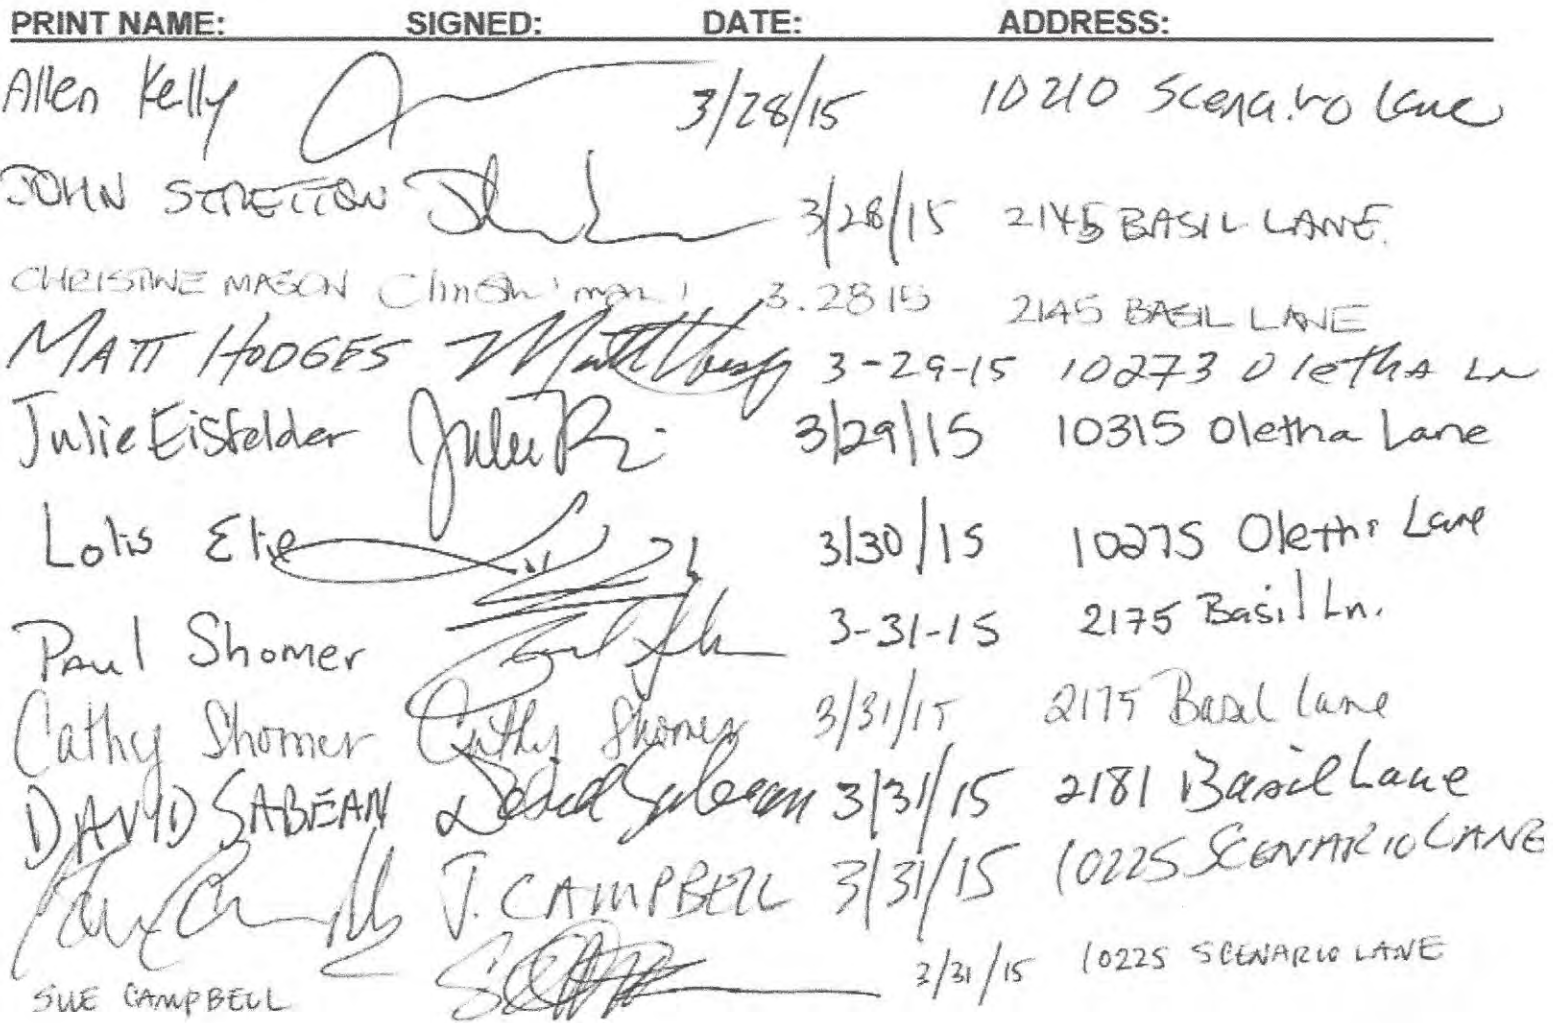 PRINT NAME: SIGNED: DATE: ADDRESS:
Allen Kelly 3/28/15 10210 Scenario Lane
JOHN STRETTON 3/28/15 2145 BASIL LANE.
CHRISTINE MASON 3.28 15 2145 BASIL LANE
MATT HODGES 3-29-15 10273 Oletha LN
Julie Eisfelder Julie 3/29/15 10315 Oletha Lane
Lolis Elie 3/30/15 10275 Oletha Lane
Paul Shomer 3-31-15 2175 Basil Ln.
Cathy Shomer Cathy Shomer 3/31/15 2175 Basil Lane
DAVID SABEAN David Sabean 3/31/15 2181 Basil Lane
J. CAMPBELL 3/31/15 10225 SCENARIO LANE
SUE CAMPBELL 3/31/15 10225 SCENARIO LANE